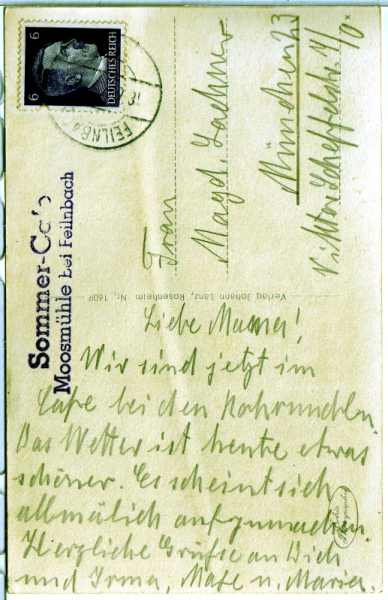 6 DEUTSCHES REICH 6
FEILNBA
Sommer-Ca
Moosmühle bei Feilnbach
Frau
Magd. Lachner
München 23
Viktor Scheffelstr.
Verlag Johann Lanz, Rosenheim Nr. 1609
Liebe Mama!
Wir sind jetzt im
Cafe bei den Rohrnudeln.
Das Wetter ist heute etwas
schöner. Es scheint sich
allmälich aufzumachen.
Herzliche Grüße an Dich
und Irma, u. Maria.